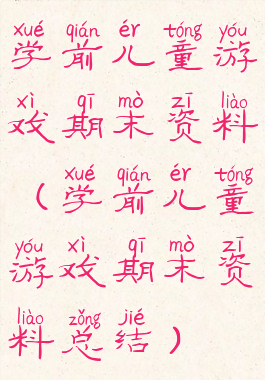 xué qián ér tóng yóu
学前儿童游
xì qī mò zī liào
戏期末资料
xué qián ér tóng
（学前儿童
yóu xì qī mò zī
游戏期末资
liào zǒng jié
料总结）